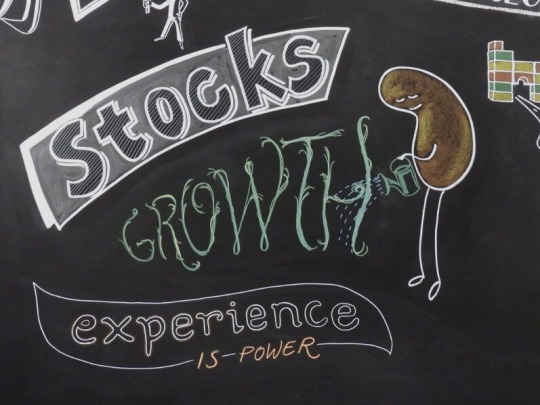 Stocks
GROWTH
experience
IS-POWER